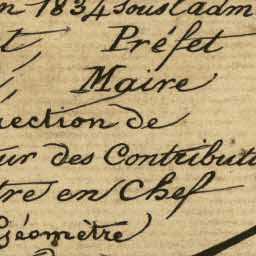 n 1834 sous l'adm
t, Préfet
Maire
rection de
ur des Contributi
tre en Chef
Géomètre